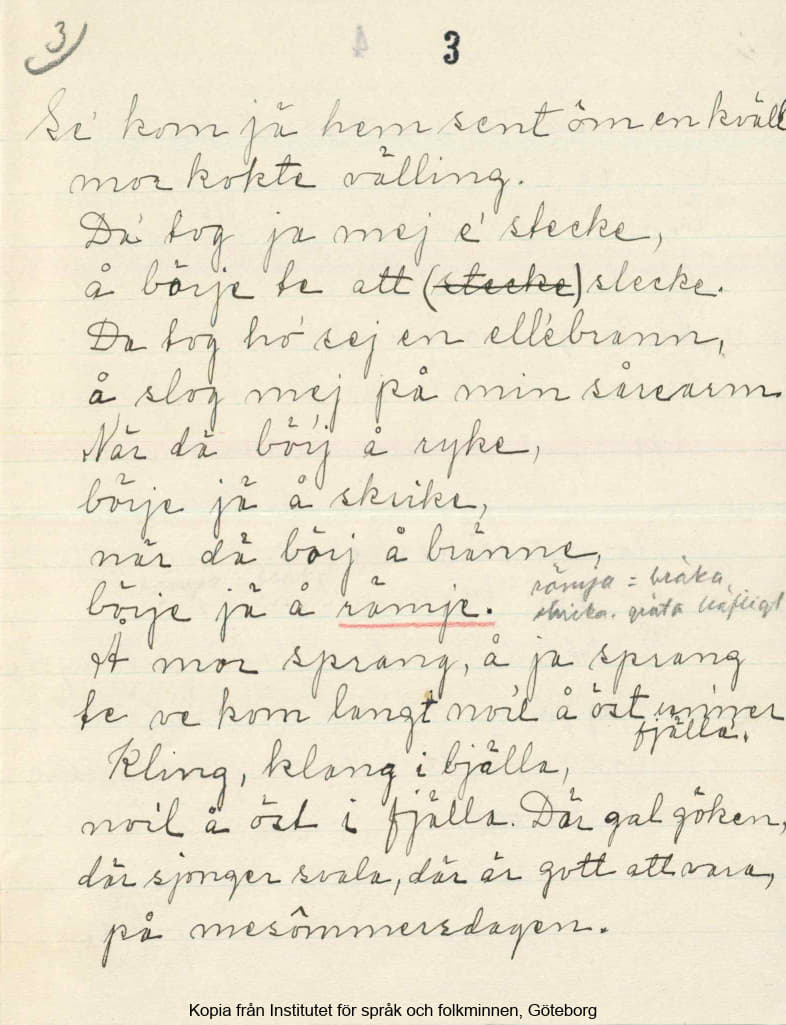 3)
3
Se' kom jä hem sent ôm en kväll
mor kokte välling.
Da' tog ja mej e' stecke,
å börje te att (stecke) slecke.
Da tog ho' sej en ellébrann,
å slog mej på min sårearm
När dä börj å ryke,
börje jä å skrike,
när dä börj å bränne,
börje jä å rämje.
rämja = bräka,
skrika. gråta häftigt
Å mor sprang, å ja sprang
te ve kom langt no'l å öst unner
fjälla.
Kling, klang i bjälla,
no'l å öst i fjälla. Där gal göken,
där sjonger svala, där är gott att vara,
på mesômmersdagen.
Kopia från Institutet för språk och folkminnen, Göteborg